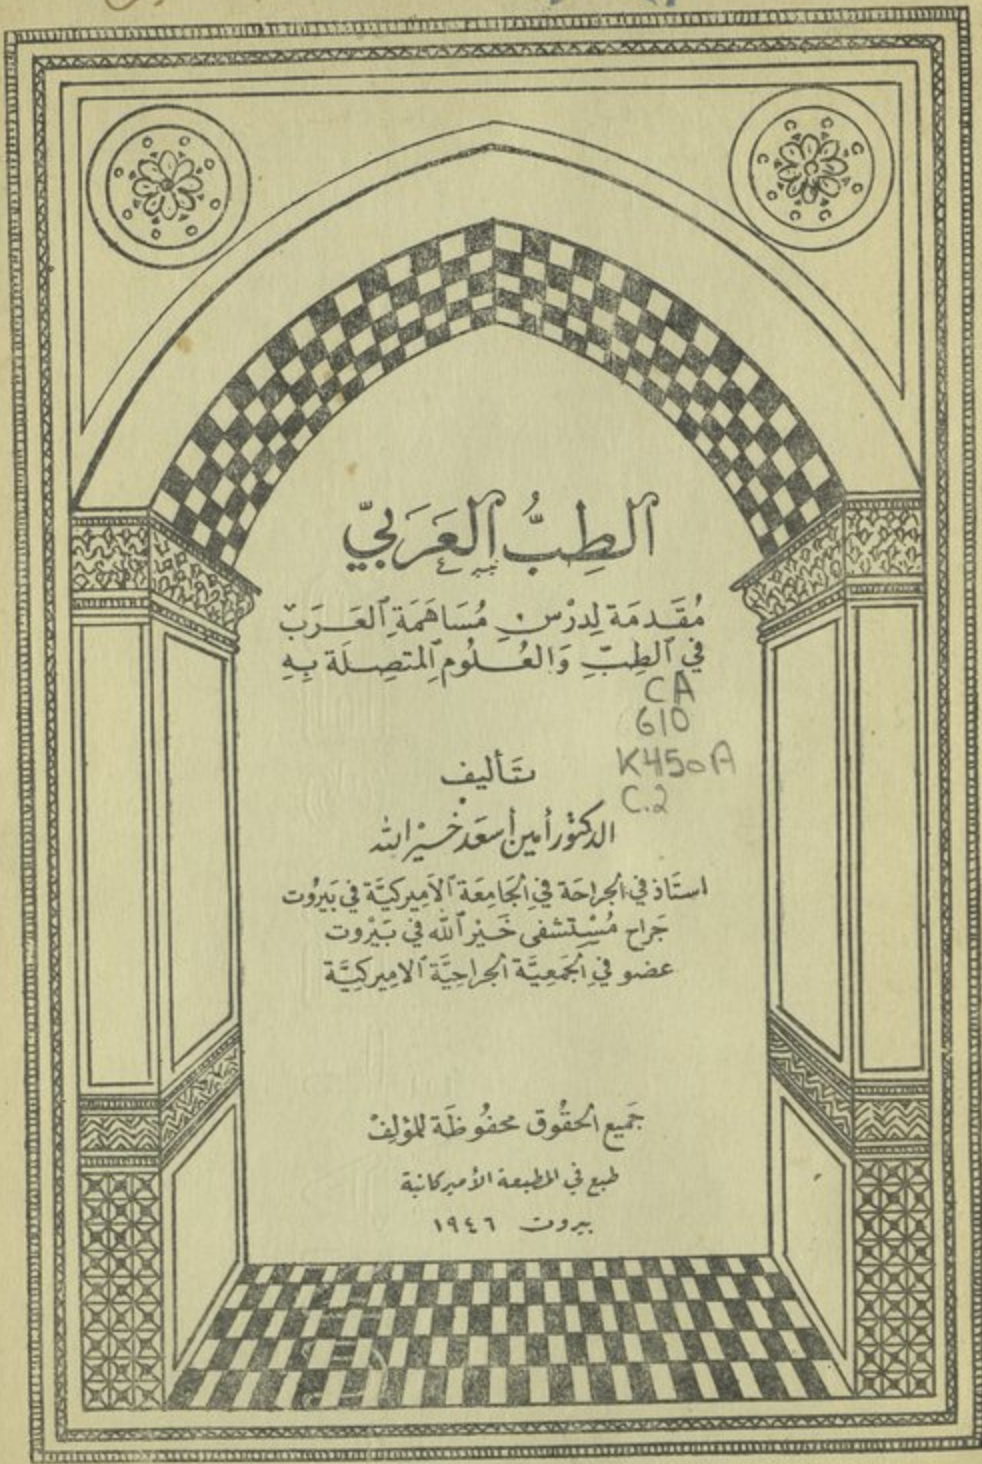 الطِبُّ العَرَبيّ
مُقَدمَة لِدرْس مُسَاهَمَةِ العَرَبْ
في الطِبّ وَالعُلُوم المتصِلَة بِهِ
CA
610
K450A
C.2
تَأليف
الدكتور أمين أسعَد خَيْر الله
استَاذ في الجراحَة في الجَامِعَة الاَميركيَّة في بَيْرُوت
جَراح مُسْتشفى خَيْر الله في بَيْروت
عضو في الجَمعِيَّة الجراحيَّة الاميركيَّة
جَميع الحقُوق محفُوظَة للمؤلِفْ
طبع في المطبعة الأميركانية
بيروت ١٩٤٦